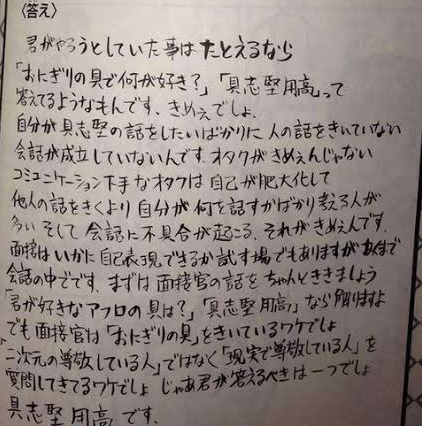 〈答え〉
君がやろうとしていた事はたとえるなら
「おにぎりの具で何が好き?」「具志堅用高」って
答えてるようなもんです、きめぇでしょ.
自分が具志堅の話をしたいばかりに人の話をきいていない
会話が成立していないんです.オタクがきめぇんじゃない
コミュニケーション下手なオタクは自己が肥大化して
他人の話をきくより自分が何を話すかばかり考える人が
多いそして会話に不具合が起こる.それがきめぇんです.
面接はいかに自己表現できるか試す場でもありますがあくまで
会話の中でです.まずは面接官の話をちゃんとききましょう
「君が好きなアフロの具は?」「具志堅用高」なら解りますよ
でも面接官は「おにぎりの具」をきいているワケでしょ
二次元の尊敬している人」ではなく「現実で尊敬している人」を
質問してきてるワケでしょ じゃあ君が答えるべきは一つでしょ
具志堅用高です.